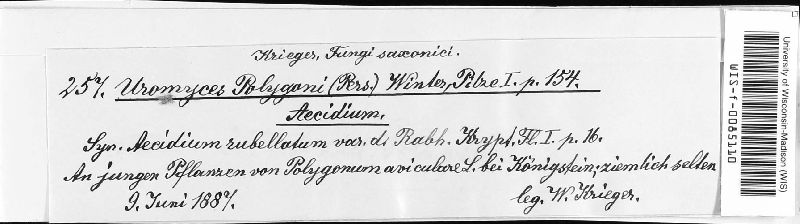 Krieger, Fungi saxonici.
257. Uromyces Polygoni (Pers.) Winter, Pilze I. p. 154.
Aecidium.
Syn. Aecidium rubellatum var. d. Rabh. Krypt. Fl. I. p. 16.
An jungen Pflanzen von Polygonum aviculare L. bei Königstein; ziemlich selten
9. Juni 1887. leg. W. Krieger.
University of Wisconsin-Madison (WIS)
WIS-f-0085110